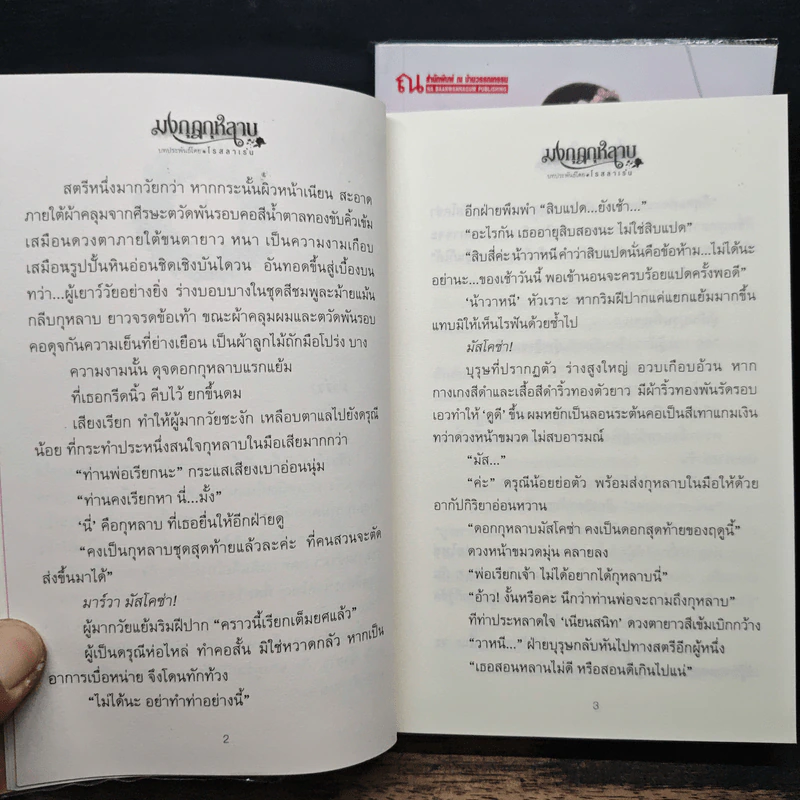 ณ สำนักพิมพ์ ณ บ้านวรรณกรรม
NA BAANWANNAGAM PUBLISHING
มงกุฎกุหลาบ
บทประพันธ์โดย โรสลาเรน
สตรีหนึ่งมากวัยกว่า หากกระนั้นผิวหน้าเนียน สะอาด
ภายใต้ผ้าคลุมจากศีรษะตวัดพันรอบคอสีน้ำตาลทองขับคิ้วเข้ม
เสมือนดวงตาภายใต้ขนตายาว หนา เป็นความงามเกือบ
เสมือนรูปปั้นหินอ่อนชิดเชิงบันไดวน อันทอดขึ้นสู่เบื้องบน
ทว่า...ผู้เยาว์วัยอย่างยิ่ง ร่างบอบบางในชุดสีชมพูละม้ายแม้น
กลีบกุหลาบ ยาวจรดข้อเท้า ขณะผ้าคลุมผมและตวัดพันรอบ
คอดุจกันความเย็นที่ย่างเยือน เป็นผ้าลูกไม้ถักมือโปร่ง บาง
ความงามนั้น ดุจดอกกุหลาบแรกแย้ม
ที่เธอกรีดนิ้ว คีบไว้ ยกขึ้นดม
เสียงเรียก ทำให้ผู้มากวัยชะงัก เหลือบตาแลไปยังดรุณี
น้อย ที่กระทำประหนึ่งสนใจกุหลาบในมือเสียมากกว่า
“ท่านพ่อเรียกนะ” กระแสเสียงเบาอ่อนนุ่ม
“ท่านคงเรียกหา นี่...มั้ง”
‘นี่’ คือกุหลาบ ที่เธอยื่นให้อีกฝ่ายดู
“คงเป็นกุหลาบชุดสุดท้ายแล้วละค่ะ ที่คนสวนจะตัด
ส่งขึ้นมาได้”
มาร์วา มัสโคซ่า!
ผู้มากวัยแย้มริมฝีปาก “คราวนี้เรียกเต็มยศแล้ว”
ผู้เป็นดรุณีห่อไหล่ ทำคอสั้น มิใช่หวาดกลัว หากเป็น
อาการเบื่อหน่าย จึงโดนทักท้วง
“ไม่ได้นะ อย่าทำท่าอย่างนี้”
2
มงกุฎกุหลาบ
บทประพันธ์โดย โรสลาเรน
อีกฝ่ายพึมพำ “สิบแปด...ยังเช้า...”
“อะไรกัน เธออายุสิบสองนะ ไม่ใช่สิบแปด”
“สิบสี่ค่ะ น้าวาหนี คำว่าสิบแปดนั่นคือข้อห้าม...ไม่ได้นะ
อย่านะ...ของเช้าวันนี้ พอเข้านอนจะครบร้อยแปดครั้งพอดี”
‘น้าวาหนี’ หัวเราะ หากริมฝีปากแค่แยกแย้มมากขึ้น
แทบมิให้เห็นไรฟันด้วยซ้ำไป
มัสโคซ่า!
บุรุษที่ปรากฏตัว ร่างสูงใหญ่ อวบเกือบอ้วน หาก
กางเกงสีดำและเสื้อสีดำริ้วทองตัวยาว มีผ้าริ้วทองพันรัดรอบ
เอวทำให้ ‘ดูดี’ ขึ้น ผมหยักเป็นลอนระต้นคอเป็นสีเทาแกมเงิน
ทว่าดวงหน้าขมวด ไม่สบอารมณ์
“มัส...”
“ค่ะ” ดรุณีน้อยย่อตัว พร้อมส่งกุหลาบในมือให้ด้วย
อากัปกิริยาอ่อนหวาน
“ดอกกุหลาบมัสโคซ่า คงเป็นดอกสุดท้ายของฤดูนี้”
ดวงหน้าขมวดมุ่น คลายลง
“พ่อเรียกเจ้า ไม่ได้อยากได้กุหลาบนี่”
“อ้าว! งั้นหรือคะ นึกว่าท่านพ่อจะถามถึงกุหลาบ”
ทีท่าประหลาดใจ ‘เนียนสนิท’ ดวงตายาวสีเข้มเบิกกว้าง
“วาหนี...” ฝ่ายบุรุษกลับหันไปทางสตรีอีกผู้หนึ่ง
“เธอสอนหลานไม่ดี หรือสอนดีเกินไปแน่”
3